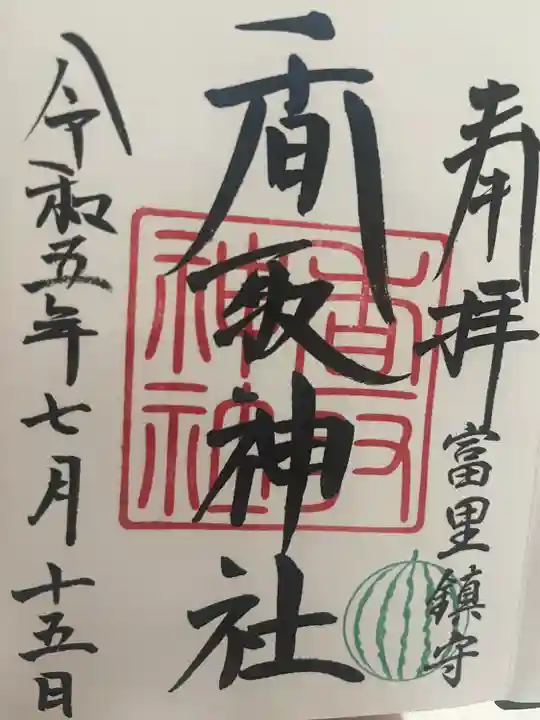 奉拝
富里鎮守
香取神社
香取神社
令和五年七月十五日